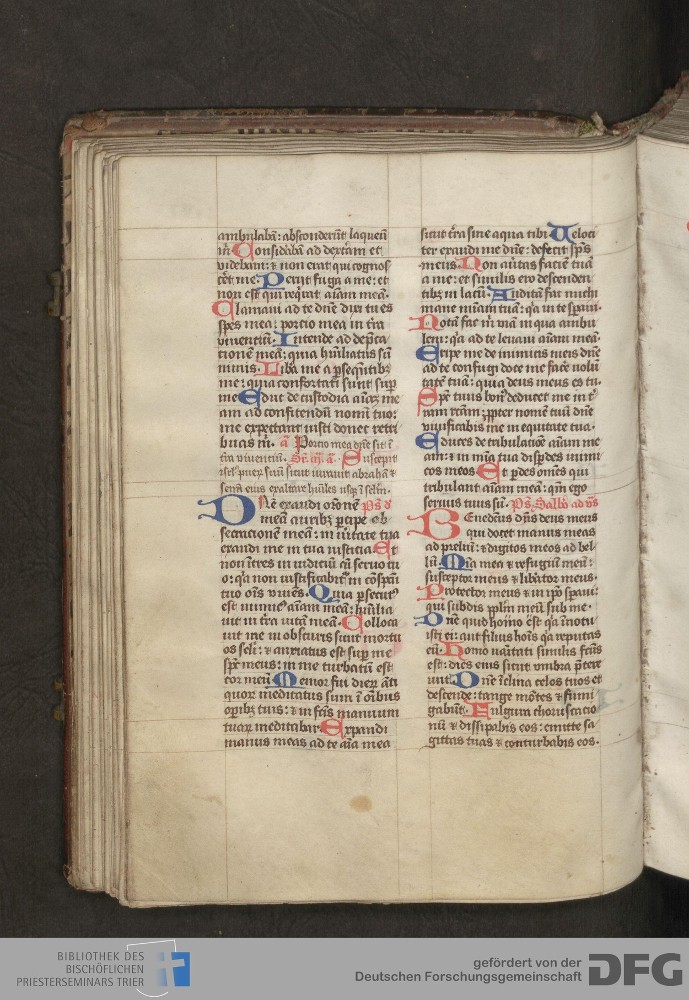 ambulabā: absconderūt laqueū
m̄. Considābā ad dextam et
videbam: ⁊ non erat qui cognos
cēt me. Perijt fuga a me: et
non est qui reqrat aīam meā.
Clamaui ad te dn̄e dixi tu es
spes mea: porcio mea in tr̄a
viuentiū. Intende ad dep̄ca
tionē meā: quia hūiliatus sū
nimis. Liba me a p̄sequētibꝫ
me: quia confortati sunt sup̄
me. Educ de custodia aīaꝫ me
am ad confitendū nomī tuo:
me expectant iusti donec retri
buas m̄. a Porcio mea dn̄e sit ī
tr̄a viuentiū. Suscepit
isrl̄ puerū suū sicut iurauit abrahā ⁊
semī eius exaltare hūiles usqꝫ ī sclm̄.
Dn̄e exaudi or̄onē ps̄ d
meā auribꝫ p̄cipe ob
secrationē meam: in v̄itate tua
exaudi me in tua iusticia. Et
non ītres in iudiciū cū seruo tu
o: qa non iustificabit in cōspcū
tuo oīs viuēs. Quia p̄secut9
est inimic9 aīam meā: hūilia
uit in tr̄a vitā meā. Colloca
uit me in obscuris sicut mortu
os scl̄i: ⁊ anxiatus est sup̄ me
sp̄c meus: in me turbatū est
cor meū. Memor fui dierꝫ āti
quorꝫ meditatus sum ī oībus
opibꝫ tuis: ⁊ in fcīs manuum
tuarꝫ meditabar. Expandi
manus meas ad te aīa mea
sicut tr̄a sine aqua tibi. Veloci
ter exaudi me dn̄e: defecit sp̄s
meus. Non auertas faciē tuā
a me: et similis ero descenden
tibꝫ in lacū. Auditā fac michi
mane mīam tuā: qa in te spaui.
Notā fac m̄ viā in qua ambu
lem: qa ad te leuaui aīam meā.
Eripe me de inimicis meis dn̄e
ad te confugi doce me facē volū
tatē tuā: quia deus meus es tu.
Spc̄ tuus bon9 deducet me in t
ram rcām: ꝓpter nomē tuū dn̄e
viuificabis me in equitate tua.
Educes de tribulatiōe aīam me
am: ⁊ in mīa tua disꝑdes inimi
cos meos. Et ꝑdes om̄es qui
tribulant aīam meā: qm̄ ego
seruus tuus sū. Ps̄
Benedcūs dn̄s deus meus
qui docet manus meas
ad preliū: ⁊ digitos meos ad bel
lū. Mīa mea ⁊ refugiū meū:
susceptor meus ⁊ libator meus.
Protector meus ⁊ in ip̄o spaui:
qui subdis pplm̄ meū sub me.
Dn̄e quid homo est qa īnotu
isti ei: aut filius hoīs qa reputas
eū. Homo vāitati similis fcūs
est: dies eius sicut vmbra p̄tere
unt. Dn̄e īclina celos tuos et
descende: tange mōtes ⁊ fumi
gabūt. Fulgura choruscatio
nū ⁊ dissipabis eos: emitte sa
gittas tuas ⁊ conturbabis eos.
BIBLIOTHEK DES
BISCHÖFLICHEN
PRIESTERSEMINARS TRIER
gefördert von der
Deutschen Forschungsgemeinschaft
DFG